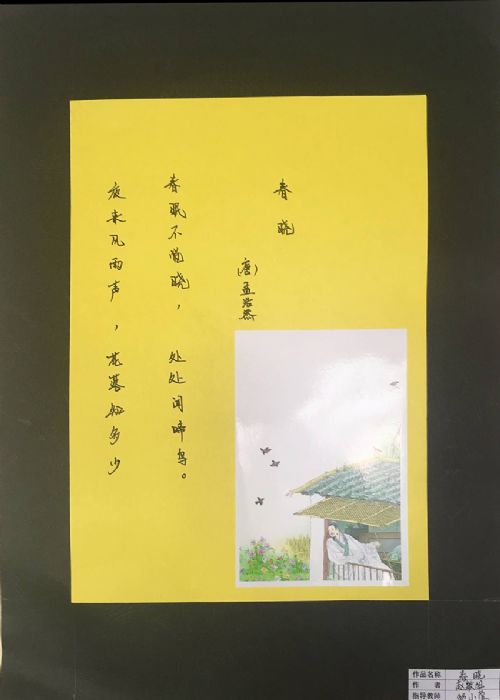 春晓
(唐)孟浩然
春眠不觉晓，处处闻啼鸟。
夜来风雨声，花落知多少
作品名称 春晓
作者
指导教师